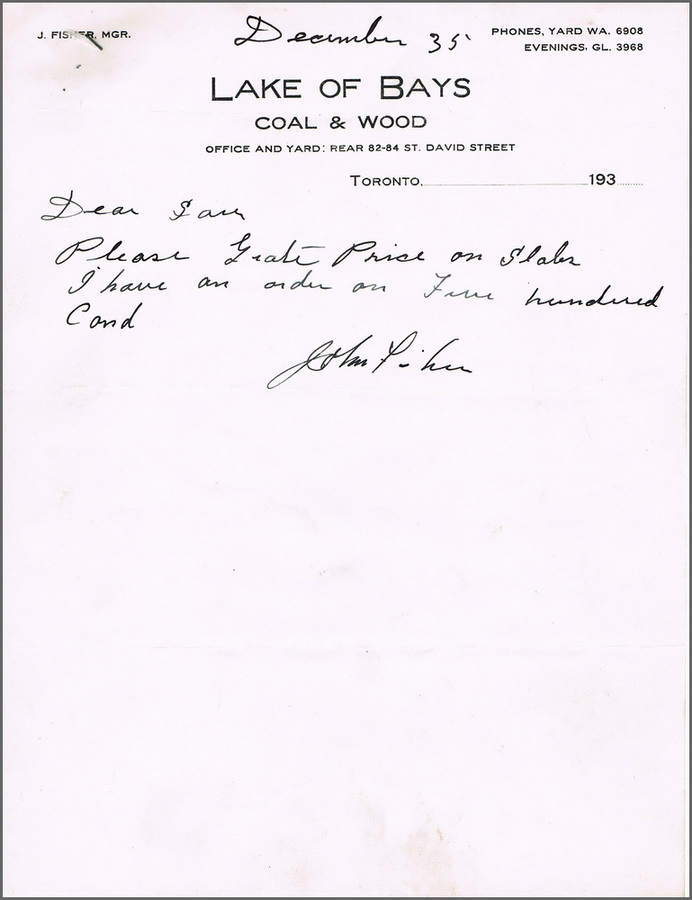 J. FISHER, MGR.
December 35
PHONES, YARD WA. 6908
EVENINGS, GL. 3968
LAKE OF BAYS
COAL & WOOD
OFFICE AND YARD: REAR 82-84 ST. DAVID STREET
TORONTO, 193
Dear
Please Price on Slabs
I have an order on Five hundered
Cord
John Fisher